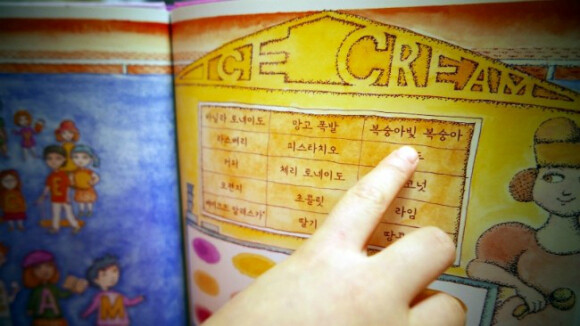 ICE CREAM
바닐라 토네이도 망고 폭발 복숭아빛 복숭아
라즈베리 피스타치오
커피 체리 토네이도 코넛
오렌지 초콜릿 라임
알래스카 딸기
A M